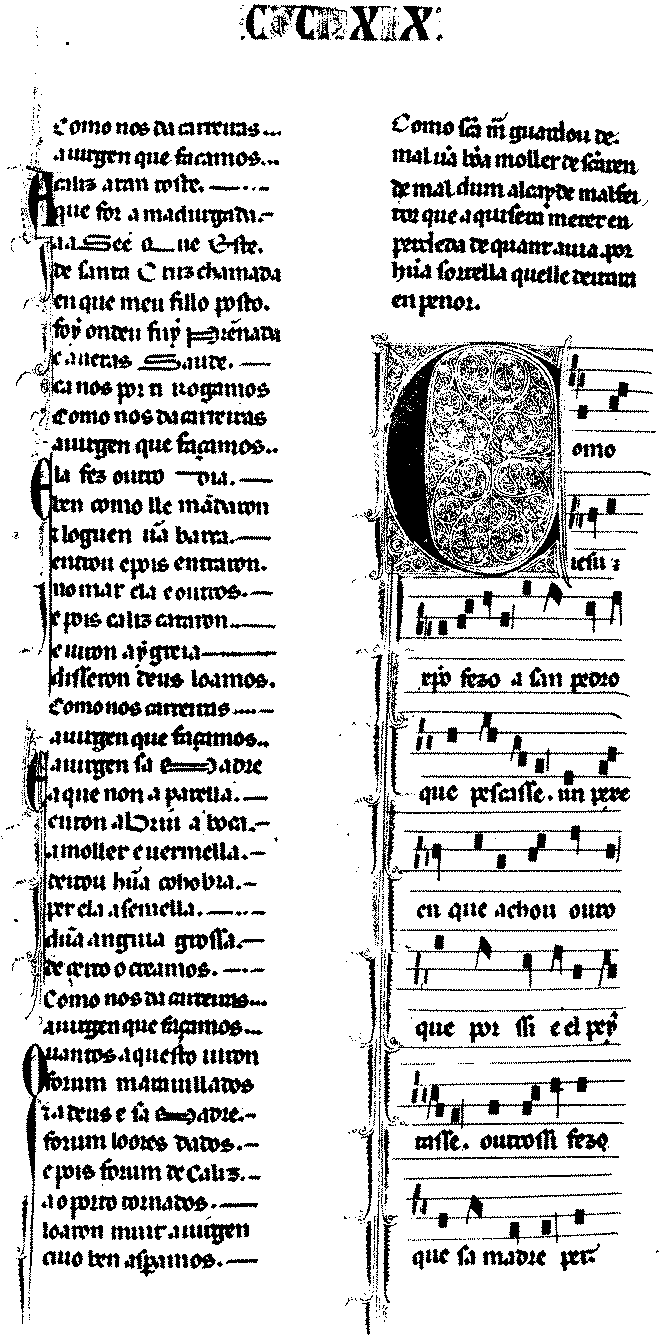 CCLXIX
Como nos da carreiras
a uirgen que façamos
caliz atan toste.
que foi a madurgada.
de santa Cruz chamada
en que meu fillo posto.
foy onden fuy prennada
e auetas saude.
ca nos por ti rogamos
Como nos da carreiras
a uirgen que façamos
la fez outro dia.
ben como lle mãdaron
e loguen ũa barca.
entrou e pois entraron.
no mar ela e outros.
e pois caliz cataron.
e uiron aly greia
disseron deus loamos.
Como nos carreiras
a uirgen que façamos
a uirgen sa Madre
a que non a parella.
enton abriu a boca.
a moller e uermella.
deitou hũa cohobra.
per ela a semella.
dũa anguia grossa.
de certo o creamos.
Como nos da carreiras
a uirgen que façamos
uantos aquesto uiron
forum marauillados
e a deus e sa Madre.
forum loores dados.
e pois forum de Caliz.
ao porto tornados.
loaron muit a uirgen
cuio ben asperamos.
Como sca m guardou de
mal ũa bõa moller de
de mal dum alcayde malfei
tor que a quisera meter en
perdeda de quant auia. por
hũa sortella quelle deitara
en penor.
Como
iesu
xpo fezo a san pedro
que pescasse. un pexe
en que achou ouro
que por ssi e el pey
tasse. outrossi fezo
que sa madre per